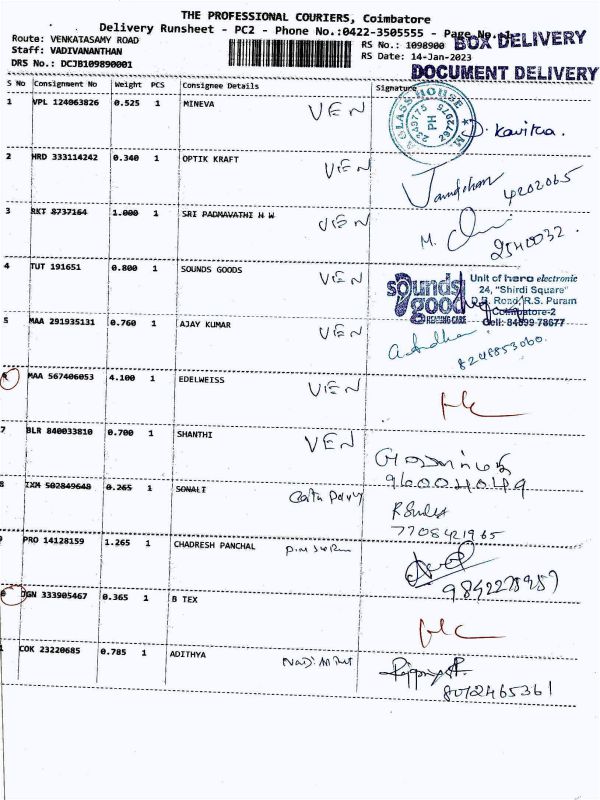 THE PROFESSIONAL COURIERS, Coimbatore
Delivery Runsheet - PC2 - Phone No.:0422-3505555 - Page No. 1
BOX DELIVERY
DOCUMENT DELIVERY
Route: VENKATASAMY ROAD
Staff: VADIVANANTHAN
DRS No.: DCJB109890001
RS No.: 1098900
RS Date: 14-Jan-2023
S No Consignment No Weight PCS Consignee Details Signature
1 VPL 124063826 0.525 1 MINEVA VEN D. Kavitha.
A GLASS HOUSE
PH
2 HRD 333114242 0.340 1 OPTIK KRAFT VEN 4202065
3 RKT 8737164 1.000 1 SRI PADMAVATHI H W VEN M. 2540032.
4 TUT 191651 0.800 1 SOUNDS GOODS VEN
sounds good
HEARING CARE
Unit of hero electronic
24, "Shirdi Square"
D.B. Road, R.S. Puram
Coimbatore-2
Cell: 84899 78677
5 MAA 291935131 0.760 1 AJAY KUMAR VEN 8248853060.
6 MAA 567406053 4.100 1 EDELWEISS VEN
7 BLR 840033810 0.700 1 SHANTHI VEN 9600404049
8 IXM 502849648 0.265 1 SONALI 7708421965
PRO 14128159 1.265 1 CHADRESH PANCHAL
0 JGN 333905467 0.365 1 B TEX
1 COK 23220685 0.785 1 ADITHYA 8072465361